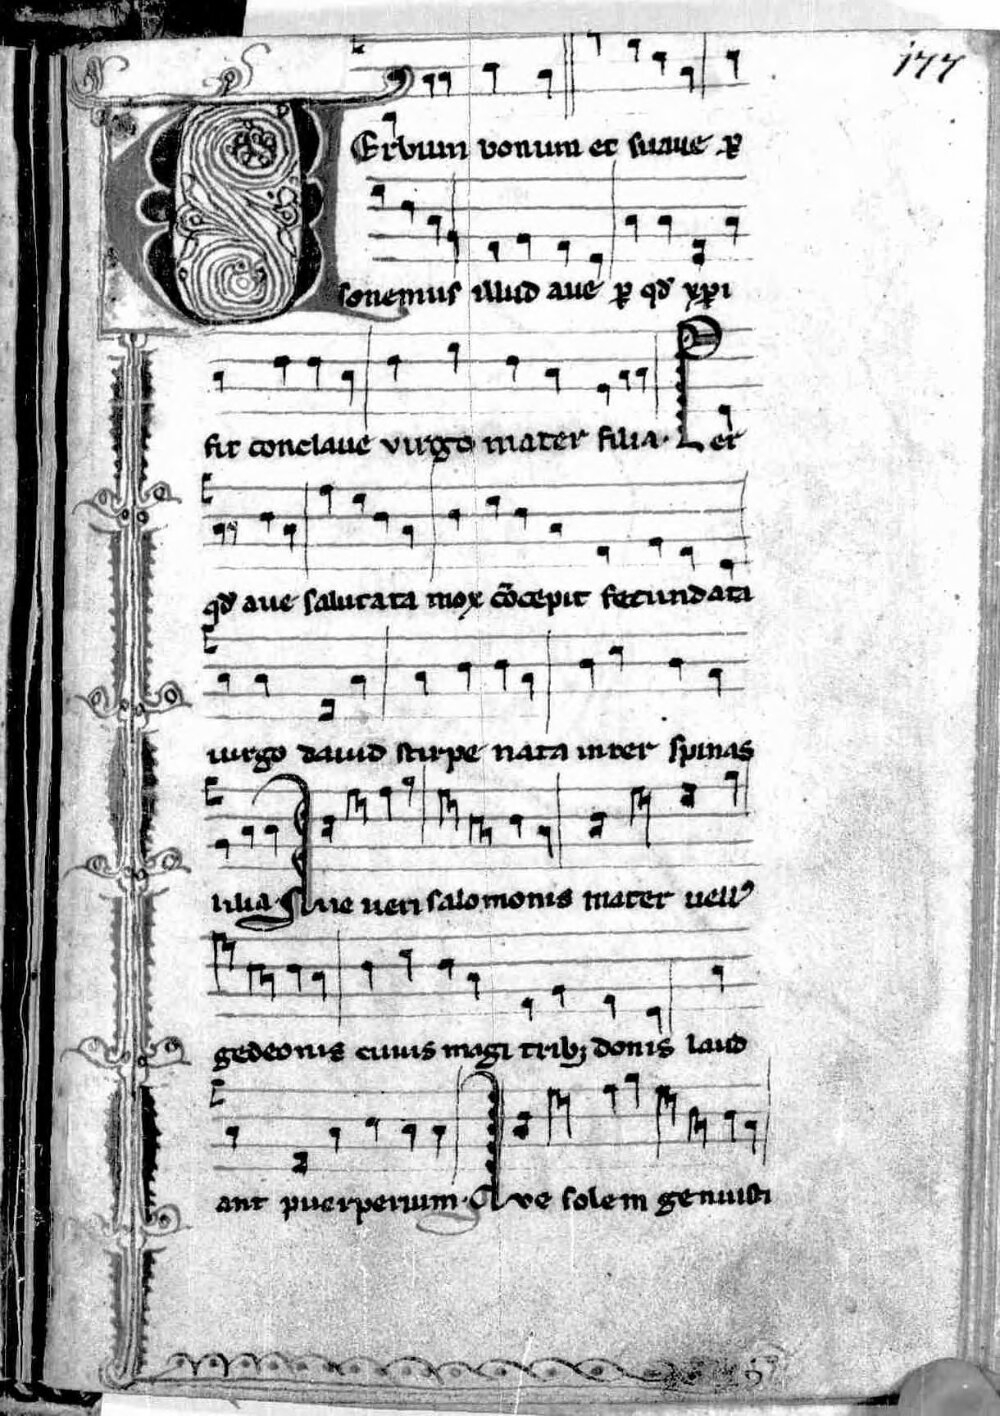 177
VErbum bonum et suaue ꝑ
sonemus illud aue ꝑ qđ xp̄i
fit conclaue virgo mater filia. Per
qđ aue salutata mox c̄ocepit fecundata
uirgo dauid stirpe nata inter spinas
lilia. Aue ueri salomonis mater uell᷒
gedeonis cuius magi tribꝫ donis laud
ant puerperium. Aue solem genuisti